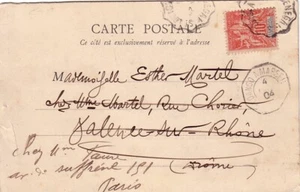 CARTE POSTALE
Ce côté est exclusivement réservé à l'adresse
Mademoiselle Esther Martel
chez Mme Martel, Rue
Valence-sur-Rhône
(Drôme)
chez Mme Faure
av. de Suffren 151
Paris
04